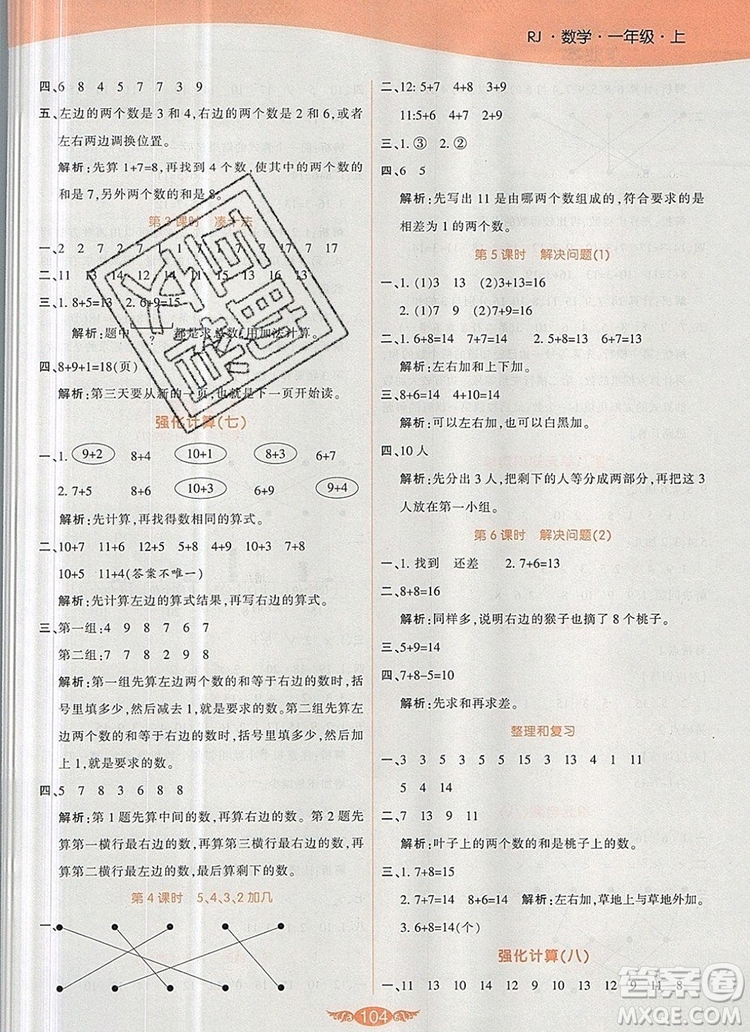 RJ · 数学 · 一年级 · 上
四、6 8 4 5 7 7 3 9
五、左边的两个数是 3 和 4,右边的两个数是 2 和 6,或者
左右两边调换位置。
解析:先算 1+7=8,再找到 4 个数,使其中的两个数的
和是 7,另外两个数的和是 8。
第 3 课时 凑十法
一、2 7 12 7 17 17 17
二、11 13 13 16 13
三、1. 8+5=13 2. 6+9=15
解析:题中 ? 都是求总数,用加法计算。
四、8+9+1=18(页)
解析:第三天要从新的一页,也就是下一页开始读。
强化计算(七)
一、1. 9+2 8+4 10+1 8+3 6+7
2. 7+5 8+6 10+3 6+9 9+4
解析:先计算,再找得数相同的算式。
二、10+7 11+6 12+5 9+8 10+8 9+9
10+5 11+4(答案不唯一)
解析:先计算左边的算式结果,再写右边的算式。
三、第一组:4 9 8 7 6 7
第二组:7 7 8 7 9 8
解析:第一组先算左边两个数的和等于右边的数几,括
号里填多少,然后减去 1,就是要求的数。第二组先算左
边两个数的和等于右边的数几,括号里填多少,然后加
上 1,就是要求的数。
四、5 7 8 3 6 8 8
解析:第 1 题先算中间的数,再算右边的数。第 2 题先
算第一横行最右边的数,再算第三横行最左边的数,再
算第二横行最右边的数,最后算剩下的数。
第 4 课时 5、4、3、2 加几
一、
二、12: 5+7 4+8 3+9
11:5+6 4+7 2+9
三、1. ③ 2. ②
四、6 5
解析:先写出 11 是由哪两个数组成的,符合要求的是
相差为 1 的两个数。
第 5 课时 解决问题(1)
一、1. (1)3 (2)13 13+3=16
2. (1)7 9 (2)7+9=16
二、1. 6+8=14 2. 5+8=13 6+7=13
解析:左右加和上下加。
三、8+6=14 4+10=14
解析:可以左右加,也可以白黑加。
四、10 人
解析:先分出 3 人,把剩下的人等分成两部分,再把这 3
人放在第一小组。
第 6 课时 解决问题(2)
一、1. 找到 还差 2. 7+6=13
二、8+8=16
解析:同样多,说明右边的猴子也摘了 8 个桃子。
三、5+9=14
四、7+8-5=10
解析:先求和再求差。
整理和复习
一、3 3 5 3 5 5 13 4 1 11
5 4 4
二、7 13 9 11
解析:叶子上的两个数的和是桃子上的数。
三、1. 7+8=15
2. 7+7=14 8+6=14 解析:左右加,草地上与草地外加。
3. 6+8=14(个)
强化计算(八)
一、11 13 10 14 12 9 11 8
104
答案圈
MXQE.COM